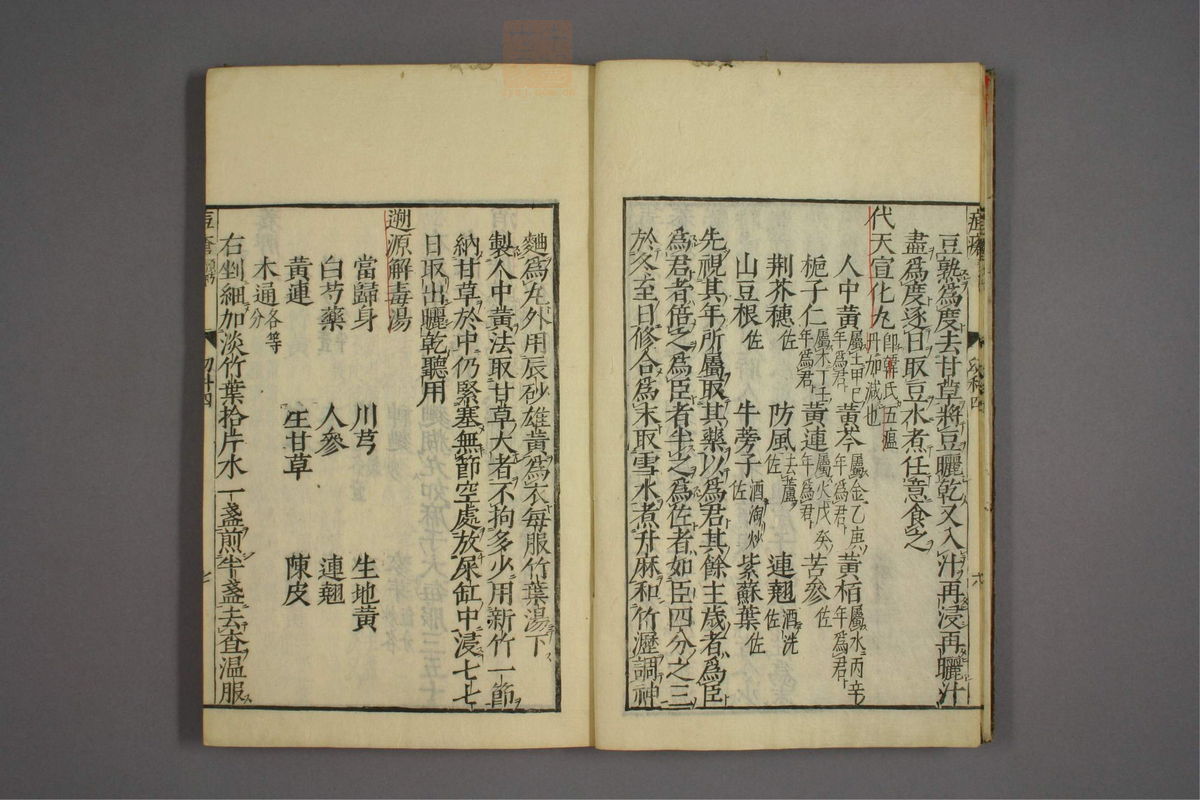 豆熟爲度去甘草將豆曬乾又入汁再浸再曬汁
盡爲度逐日取豆水煮任意食之
代天宣化丸卽韓氏五瘟丹加減也
人中黃屬土甲己年爲君 黃芩屬金乙庚年爲君 黃栢屬水丙辛年爲君
梔子仁屬木丁壬年爲君 黃連屬火戊癸年爲君 苦參佐
荆芥穗佐 防風去蘆佐 連翹酒洗佐
山豆根佐 牛蒡子酒淘炒佐 紫蘇葉佐
先視其年所屬取其藥以爲君其餘主歲者爲臣
爲君者倍之爲臣者半之爲佐者如臣四分之三
於冬至日修合爲末取雪水煮升麻和竹瀝調神
麯爲丸外用辰砂雄黃爲衣每服竹葉湯下
製人中黃法取甘草大者不拘多少用新竹一節
納甘草於中仍緊塞無節空處放尿缸中浸七七
日取出曬乾聽用
遡源解毒湯
當歸身 川芎 生地黃
白芍藥 人參 連翹
黃連 生甘草 陳皮
木通各等分
右剉細加淡竹葉拾片水一盞煎半盞去査温服